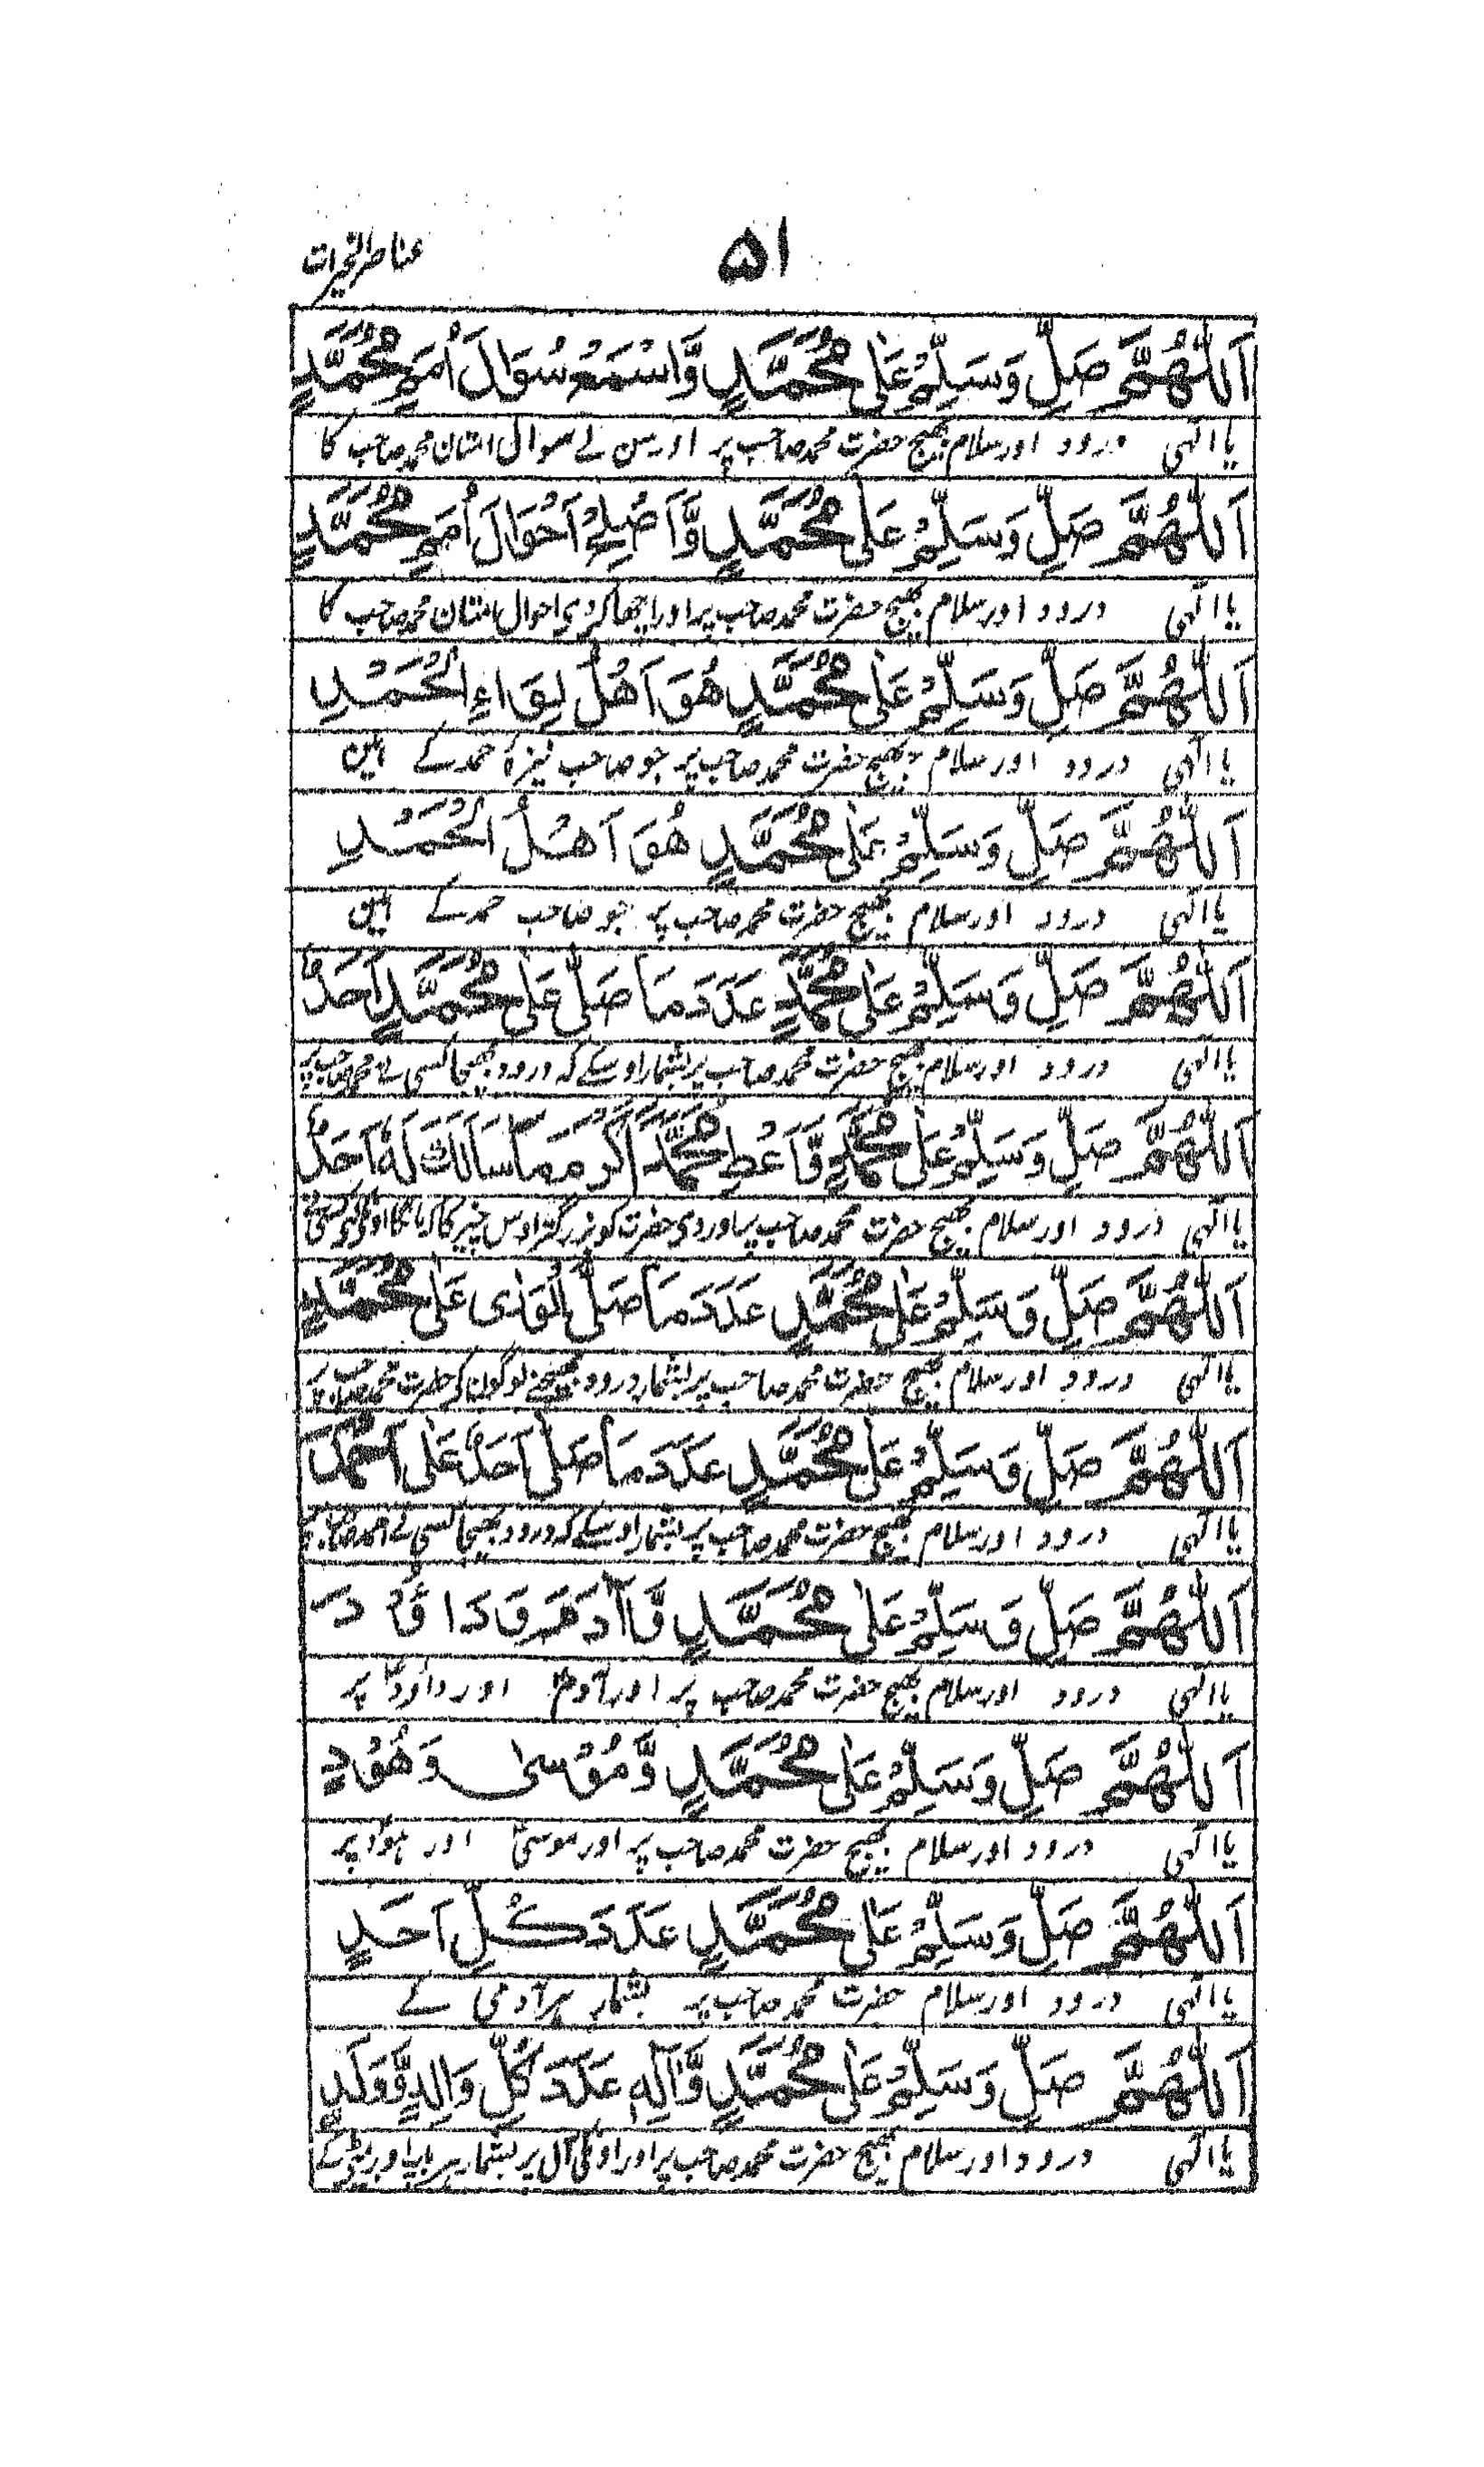 ۵۱
عناصر الخیرات
اَللّٰهُمَّ صَلِّ وَسَلِّمْ عَلٰی مُحَمَّدٍ وَّاسْمَعْ سُوَالَ اُمَمِ مُحَمَّدٍ
یا الٰہی درود اور سلام بھیج حضرت محمد صاحب پر اور سن لے سوال امتان محمد صاحب کا
اَللّٰهُمَّ صَلِّ وَسَلِّمْ عَلٰی مُحَمَّدٍ وَّاَصْلِحْ اَحْوَالَ اُمَمِ مُحَمَّدٍ
یا الٰہی درود اور سلام بھیج حضرت محمد صاحب پر اور اچھا کر دی احوال امتان محمد صاحب کا
اَللّٰهُمَّ صَلِّ وَسَلِّمْ عَلٰی مُحَمَّدٍ هُوَ اَهْلُ لِوَاءِ الْحَمْدِ
یا الٰہی درود اور سلام بھیج حضرت محمد صاحب پر جو صاحب نیزۂ حمد کے ہین
اَللّٰهُمَّ صَلِّ وَسَلِّمْ عَلٰی مُحَمَّدٍ هُوَ اَهْلُ الْحَمْدِ
یا الٰہی درود اور سلام بھیج حضرت محمد صاحب پر جو صاحب حمد کے ہین
اَللّٰهُمَّ صَلِّ وَسَلِّمْ عَلٰی مُحَمَّدٍ عَدَدَ مَا صَلّٰی عَلٰی مُحَمَّدٍ اَحَدٌ
یا الٰہی درود اور سلام بھیج حضرت محمد صاحب پر بشمار اوسکے کہ درود بھیجا کسی نے محمد صاحب پر
اَللّٰهُمَّ صَلِّ وَسَلِّمْ عَلٰی مُحَمَّدٍ وَّاَعْطِ مُحَمَّدًا اَکْرَمَ مَا سَاَلَكَ لَهٗ اَحَدٌ
یا الٰہی درود اور سلام بھیج حضرت محمد صاحب پر اور دی حضرت کو بزرگتر اوس چیز کا کہ مانگا کسی نے
اَللّٰهُمَّ صَلِّ وَسَلِّمْ عَلٰی مُحَمَّدٍ عَدَدَ مَا صَلَّی الْوَرٰی عَلٰی مُحَمَّدٍ
یا الٰہی درود اور سلام بھیج حضرت محمد صاحب پر بشمار درود بھیجنے لوگون کی حضرت محمد صاحب پر
اَللّٰهُمَّ صَلِّ وَسَلِّمْ عَلٰی مُحَمَّدٍ عَدَدَ مَا صَلّٰی اَحَدٌ عَلٰی اَحْمَدَ
یا الٰہی درود اور سلام بھیج حضرت محمد صاحب پر بشمار اوسکے کہ درود بھیجا کسی نے احمد صاحب پر
اَللّٰهُمَّ صَلِّ وَسَلِّمْ عَلٰی مُحَمَّدٍ وَّاٰدَمَ وَدَاوٗدَ
یا الٰہی درود اور سلام بھیج حضرت محمد صاحب پر اور آدمؑ اور داودؑ پر
اَللّٰهُمَّ صَلِّ وَسَلِّمْ عَلٰی مُحَمَّدٍ وَّمُوْسٰی وَهُوْدٍ
یا الٰہی درود اور سلام بھیج حضرت محمد صاحب پر اور موسیٰؑ اور ہودؑ پر
اَللّٰهُمَّ صَلِّ وَسَلِّمْ عَلٰی مُحَمَّدٍ عَدَدَ کُلِّ اَحَدٍ
یا الٰہی درود اور سلام حضرت محمد صاحب پر بشمار ہر آدمی کے
اَللّٰهُمَّ صَلِّ وَسَلِّمْ عَلٰی مُحَمَّدٍ وَّاٰلِهٖ عَدَدَ کُلِّ وَالِدٍ وَّوَلَدٍ
یا الٰہی درود اور سلام بھیج حضرت محمد صاحب پر اور اونکی آل پر بشمار ہر باپ اور بیٹی کے